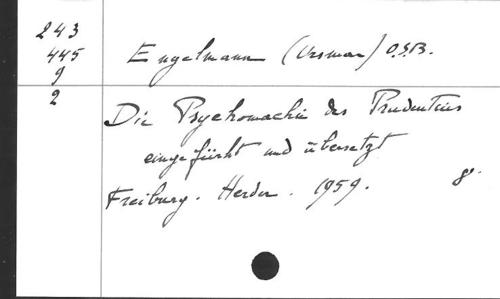 243
445
9
2
Engelmann (Ursmar) O.S.B.
Die Psychomachie des Prudentius
eingeführt und übersetzt
Freiburg. Herder. 1959. 8°.